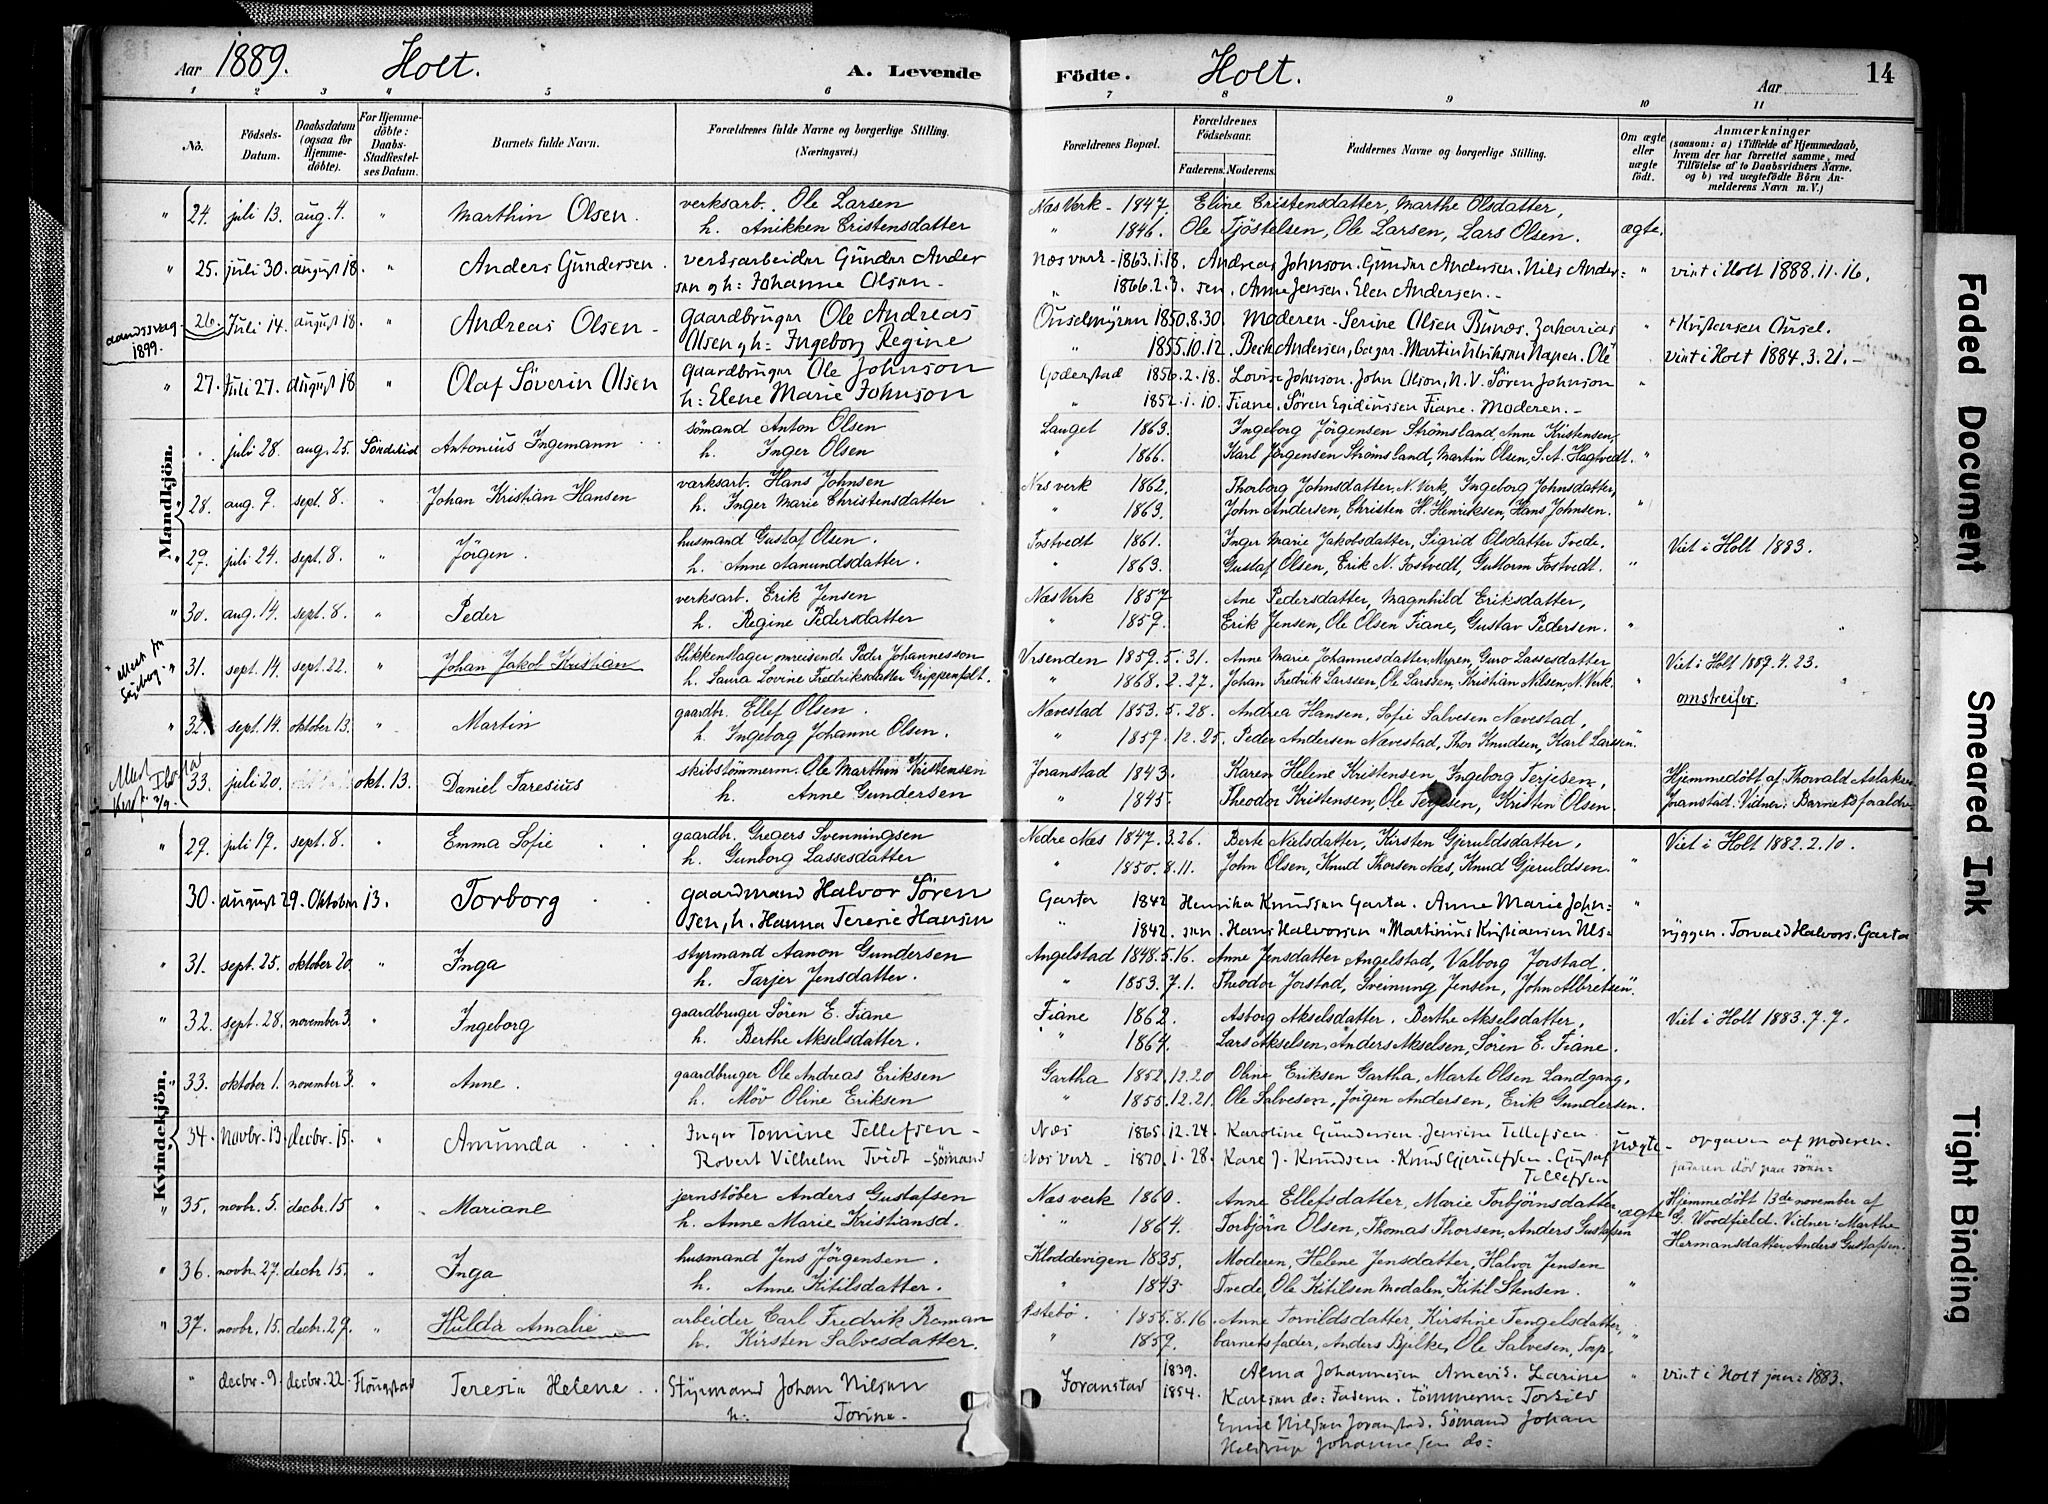 Aar 1889. Holt. A. Levende Födte. Holt. Aar 14
1 2 3 4 5 6 7 8 9 10 11
No. Födsels-Datum. Daabsdatum (ogsaa for Hjemmedöbte). For Hjemmedöbte: Daabs-Stadfæstelses Datum. Barnets fulde Navn. Forældrenes fulde Navne og borgerlige Stilling. (Næringsvei.) Forældrenes Bopæl. Forældrenes Födselsaar. Faderens. Moderens. Faddernes Navne og borgerlige Stilling. Om ægte eller uægte födt. Anmærkninger (saasom: a) i Tilfælde af Hjemmedaab, hvem der har forrettet samme, med Tilföielse af to Daabsvidners Navne. og b) ved uægtefödte Börn Anmelderens Navn m. V.)
Mandkjön.
" 24. juli 13. aug. 4. " Marthin Olsen. verksarb. Ole Larsen Næs Verk - 1847. Eline Cristensdatter, Marthe Olsdatter,
h. Anikken Cristensdatter " 1846. Ole Tjöstelsen, Ole Larsen, Lars Olsen. ægte.
" 25. juli 30. august 18. " Anders Gundersen. verksarbeider Gunder Ander Næs verk - 1863.1.18. Andreas Johnson. Gunder Andersen. Nils Ander= " viet i Holt 1888.11.16.
sen og h: Johanne Olsen - " 1866.2.3. sen. Anne Jensen. Elen Andersen. -
aandssvag 1899. 26. Juli 14. august 18. " Andreas Olsen - gaardbruger Ole Andreas 1850.8.30. Moderen - Serine Olsen Bunæs. Zacharias " + Kristensen Ousel.
Olsen og h: Ingeborg Regine " 1855.10.12. Beck Andersen, Martin Ulriksen Napen. Ole viet i Holt 1884.3.21. -
" 27. Juli 27. august 18 " Olaf Söverin Olsen gaardbruger Ole Johnson Goderstad 1856.2.18. Lovise Johnson. John Olson, N.V. Sören Johnson "
h: Elene Marie Johnson " 1852.1.10. Fiane. Sören Egidiussen Fiane. Moderen. -
" juli 28. aug. 25. Söndelid Antonius Ingemann sömand Anton Olsen Lauget 1863. Ingeborg Jörgensen Strömsland, Anne Kristensen,
h. Inger Olsen " 1866. Karl Jörgensen Strömsland, Martin Olsen, S. A. Hagtvedt. "
" 28. aug. 9. sept. 8. " Johan Kristian Hansen verksarb. Hans Johnsen Næs verk 1862. Thorborg Johnsdatter, N. Verk, Ingeborg Johnsdatter,
h. Inger Marie Christensdatter " 1863. John Andersen, Christen H. Henriksen, Hans Johnsen. "
" 29. juli 24. sept. 8. " Jörgen. husmand Gustaf Olsen. Fostvedt 1861. Inger Marie Jakobsdatter, Sigrid Olsdatter Tvede. Viet i Holt 1883.
h. Anne Aanundsdatter. " 1863. Gustaf Olsen, Erik N. Fostvedt, Guttorm Fostvedt. "
" 30. aug. 14. sept. 8. " Peder verksarb. Erik Jensen Næs Verk 1857 Ane Pedersdatter, Magnhild Eriksdatter,
h. Regine Pedersdatter " 1859. Erik Jensen, Ole Olsen Fiane, Gustav Pedersen. "
" attest for Sejeberg " 31. sept. 14. sept. 22. " Johan Jakob Kristian blikkenslager, omreisende Peder Johannesson Vrsenden 1859.5.31. Anne Marie Johannesdatter, Myren, Guro Lassesdatter, Viet i Holt 1887.4.23.
h. Laura Lovine Fredriksdatter Grippenfelt. " 1868.2.27. Johan Fredrik Larssen, Ole Larssen, Kristian Nilsen, N. Verk. " omstreifer.
" 32. sept. 14. oktober 13. " Martin gaardbr. Ellef Olsen. Nævestad 1853.5.28. Andrea Hansen, Sofie Salvesen Nævestad,
h. Ingeborg Johanne Olsen. " 1859.12.25. Peder Andersen Nævestad, Thor Knudsen, Karl Larssen. "
33. juli 20. okt. 13. Daniel Taresius skibstömmerm. Ole Marthin Kristensen Joranstad 1843. Karen Helene Kristensen, Ingeborg Terjesen, Hjemmedöbt af Thorvald Aslaksen
h. Anne Gundersen " 1845. Theodor Kristensen, Ole Terjesen, Kristen Olsen. Joranstad. Vidner: Barnets forældre
Kvindekjön.
" 29. juli 19. sept. 8. " Emma Sofie gaardbr. Gregers Svenningsen Nedre Næs 1847.3.26. Berte Nielsdatter, Kirsten Gjeruldsdatter, Viet i Holt 1882.2.10.
h. Gunborg Lassesdatter " 1850.8.11. John Olsen, Knud Thorsen Næs, Knud Gjeruldsen. "
30. august 29. Oktober 13. Torborg gaardmand Halvor Sören Garta 1842 Henrika Knudsen Garta. Anne Marie John= "
sen, h. Hanna Teresie Hansen " 1842. sen. Hans Halvorsen " Martinius Kristiansen Uls= ryggen. Torvald Halvors. Garta
" 31. sept. 25. oktober 20 " Inga styrmand Aanon Gundersen Angelstad 1848.5.16. Anne Jensdatter Angelstad, Valborg Jorstad.
h. Tarjer Jensdatter. " 1853.7.1. Theodor Jorstad, Sveinung Jensen, John Albretsen. "
" 32. sept. 28. november 3. " Ingeborg gaardbruger Sören E. Fiane Fiane 1862. Asborg Akselsdatter. Berthe Akselsdatter, Viet i Holt 1883.7.7.
h. Berthe Akselsdatter. " 1864. Lars Akselsen, Anders Akselsen, Sören E. Fiane.
33. oktober 1. november 3. " Anne. gaardbruger Ole Andreas Eriksen Gartha 1852.12.20 Oline Eriksen Gartha, Marte Olsen Landgang,
h. Möv Oline Eriksen " 1855.12.21. Ole Salvesen, Jörgen Andersen, Erik Gundersen.
34. Novbr. 13. decbr. 15. " Amunda Inger Tomine Tellefsen - Næs 1865.12.24. Karoline Gundersen. Jensine Tellefsen. uægte - opgaven af moderen.
Robert Vilhelm Tvidt - Sömand Næs Verk - 1870.1.28. Kare J. Knudsen. Knud Gjerulfsen. Gustaf Tellefsen faderen död paa söen=
" 35. novbr. 5. decbr. 15 " Mariane jernstöber Anders Gustafsen Næs verk 1860. Anne Ellefsdatter, Marie Torbjörnsdatter ægte Hjemmedöbt 13de november af
h. Anne Marie Kristiansd. " 1864. Torbjörn Olsen, Thomas Thorsen, Anders Gustafsen G. Woodfield. Vidner: Marthe
Hermansdatter, Anders Gustafsen.
" 36. novbr. 27. decbr 15. " Inga husmand Jens Jörgensen. Kloddevigen 1835. Moderen, Helene Jensdatter, Halvor Jensen
h. Anne Kitilsdatter. " 1843 Tvede, Ole Kitilsen Modalen, Kitil Stensen. "
" 37. novbr. 15. decbr. 29. " Hulda Amalie arbeider Carl Fredrik Reman Østebö 1855.8.16. Anne Torvildsdatter, Kirstine Tengelsdatter,
h. Kirsten Salvesdatter. " 1859. barnets fader, Anders Bjelke, Ole Salvesen, Torp. "
" decbr. 9. decbr. 22. Flougstad Teresia Helene. Styrmand Johan Nilsen Joranstad 1839. Alma Johannesen Arnevig. Larine " viet i Holt jan= 1883.
h: Torine. 1854. Karlsen do= Faderen. tömmerm= Torkild
Emil Nilsen Joranstad. Sömand Johan
Johannesen do:
Faded Document
Smeared Ink
Tight Binding